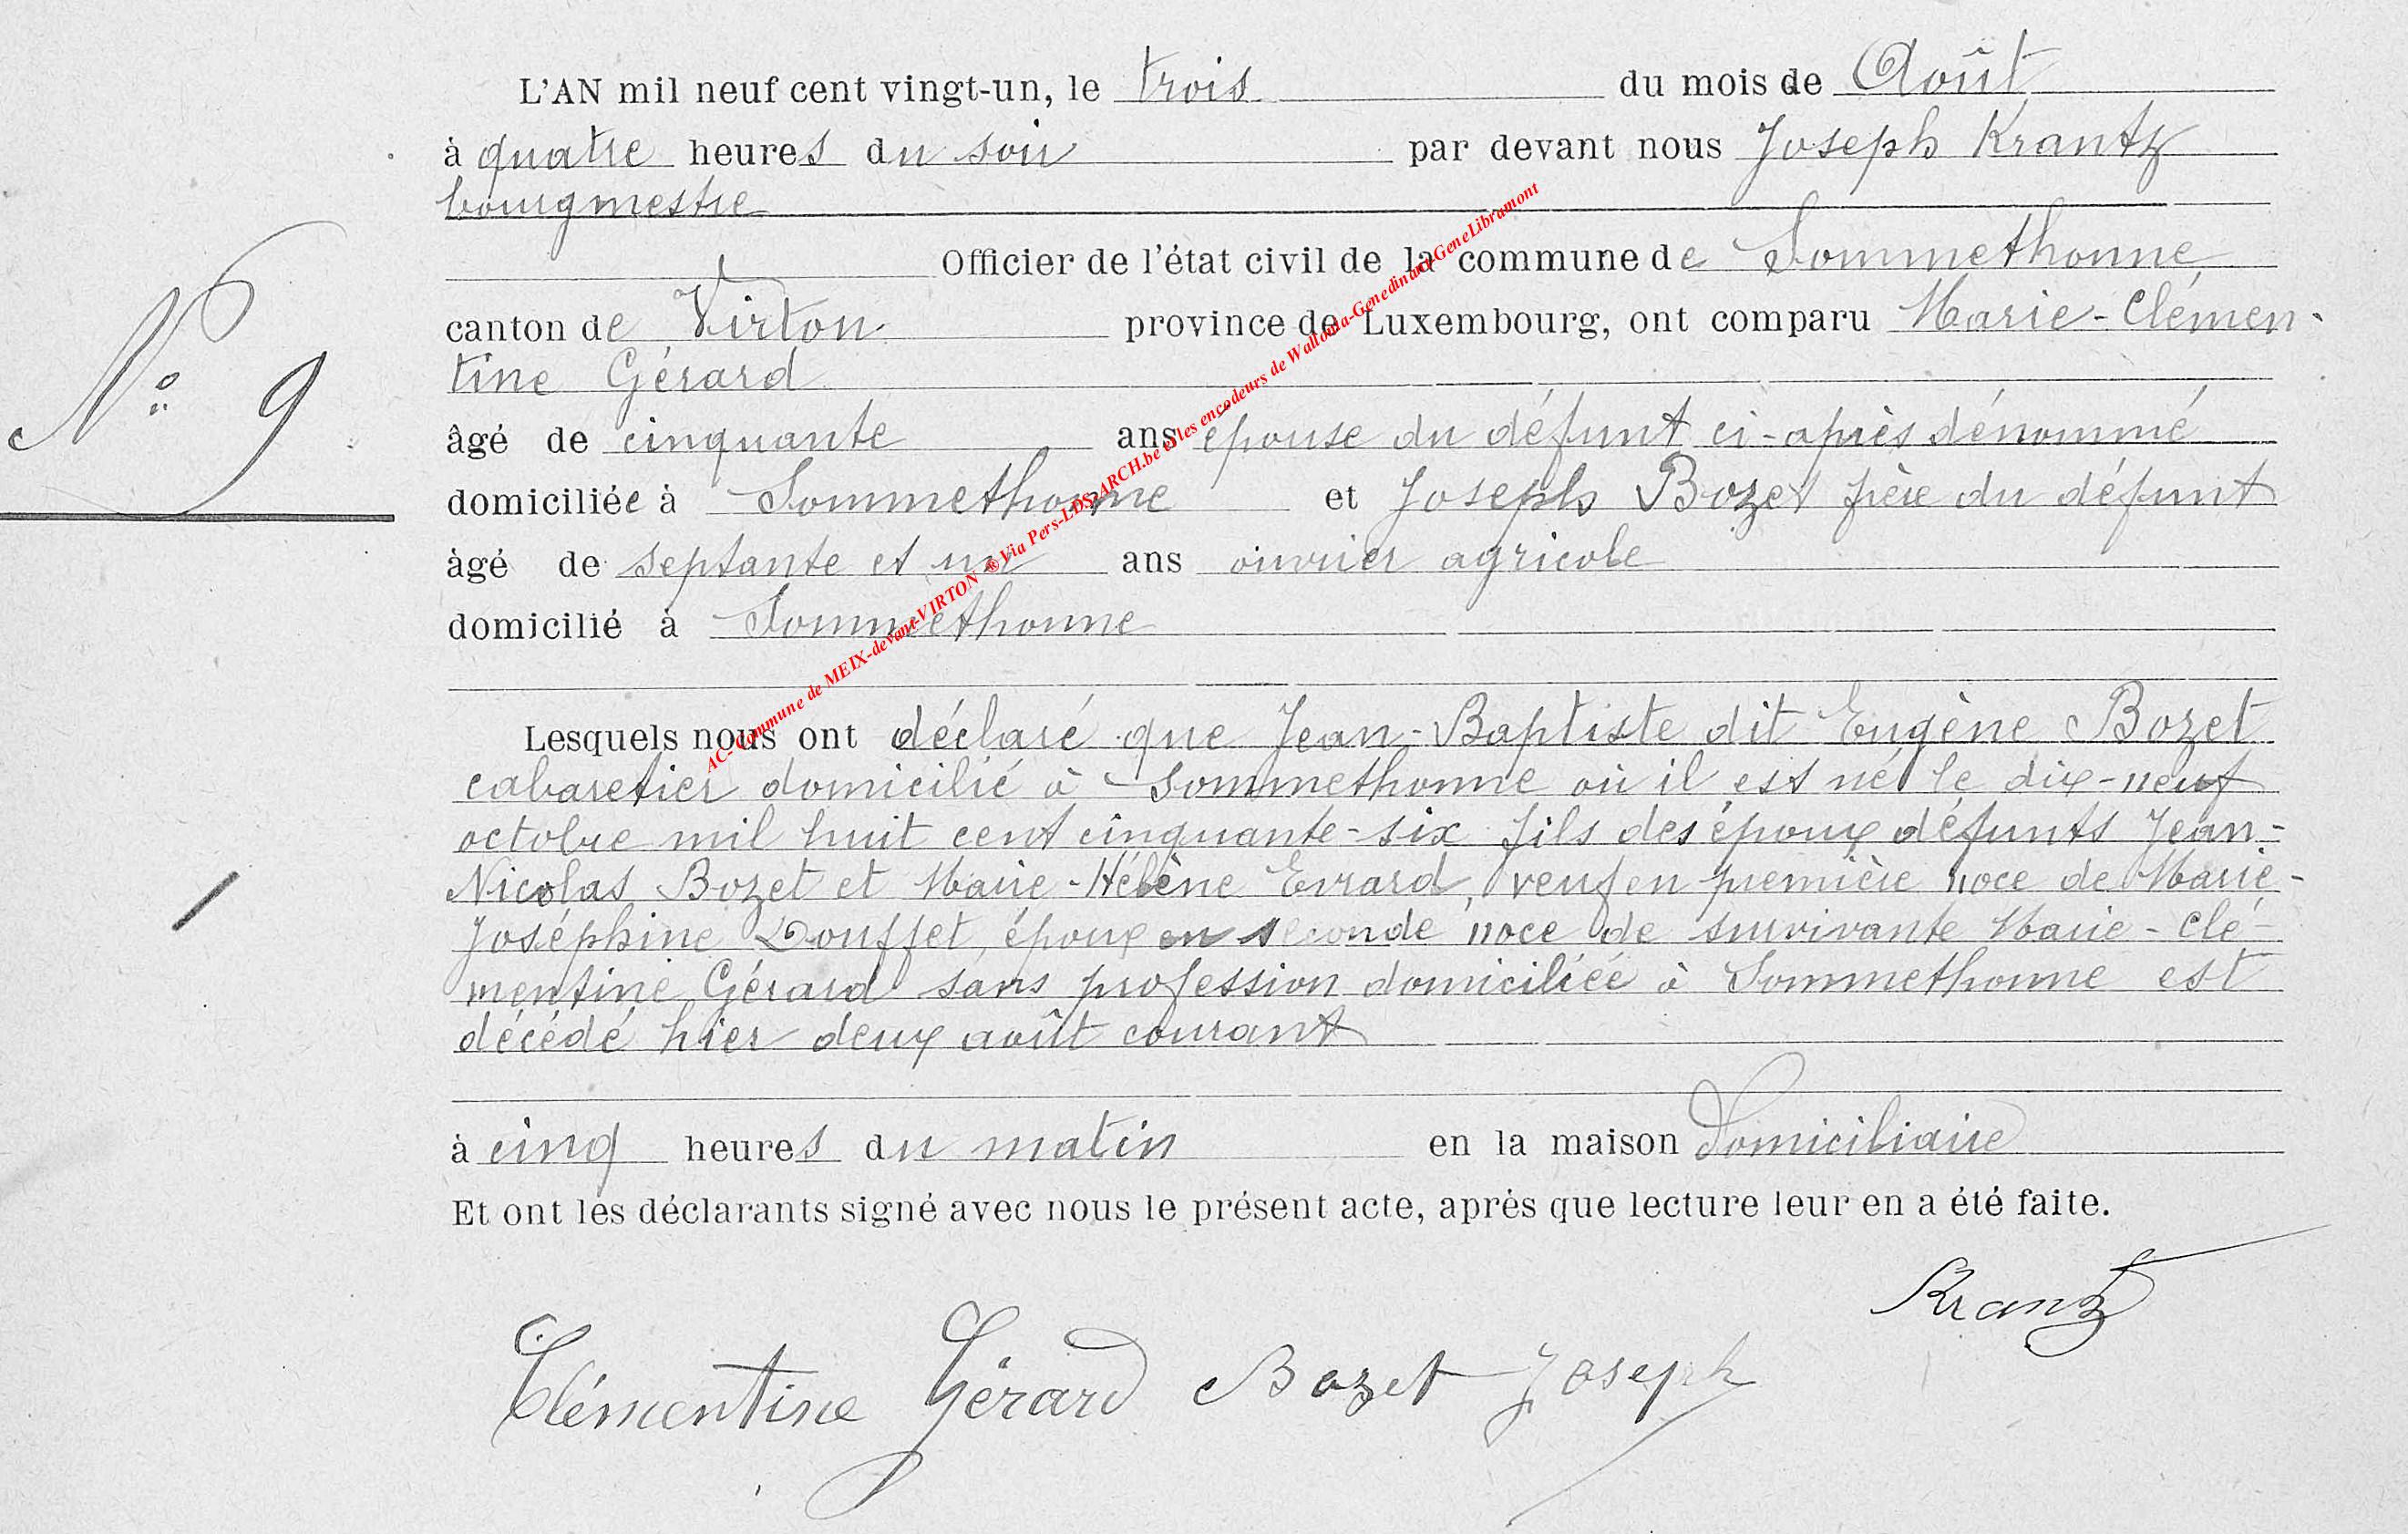 L'AN mil neuf cent vingt-un, le trois du mois de Août
à quatre heures du soir par devant nous Joseph Krantz
bourgmestre
Officier de l'état civil de la commune de Sommethonne
canton de Virton province de Luxembourg, ont comparu Marie-Clémen-
tine Gérard
N° 9
âgé de cinquante ans épouse du défunt ci-après dénommé
domiciliée à Sommethonne et Joseph Bozet frère du défunt
âgé de septante et un ans ouvrier agricole
domicilié à Sommethonne
Lesquels nous ont déclaré que Jean-Baptiste dit Eugène Bozet
cabaretier domicilié à Sommethonne où il est né le dix-neuf
octobre mil huit cent cinquante-six fils des époux défunts Jean-
Nicolas Bozet et Marie-Hélène Evrard, veuf en première noce de Marie-
Joséphine Douffet, époux en seconde noce de survivante Marie-Clé-
mentine Gérard sans profession domiciliée à Sommethonne est
décédé hier deux août courant
à cinq heures du matin en la maison Domiciliaire
Et ont les déclarants signé avec nous le présent acte, après que lecture leur en a été faite.
Krantz
Clémentine Gérard Bozet Joseph
AC-Commune de MEIX-devant-VIRTON ® Via Pers-LDS-ARCH.be et les encodeurs de Wallonia-Genedinant-GeneLibramont